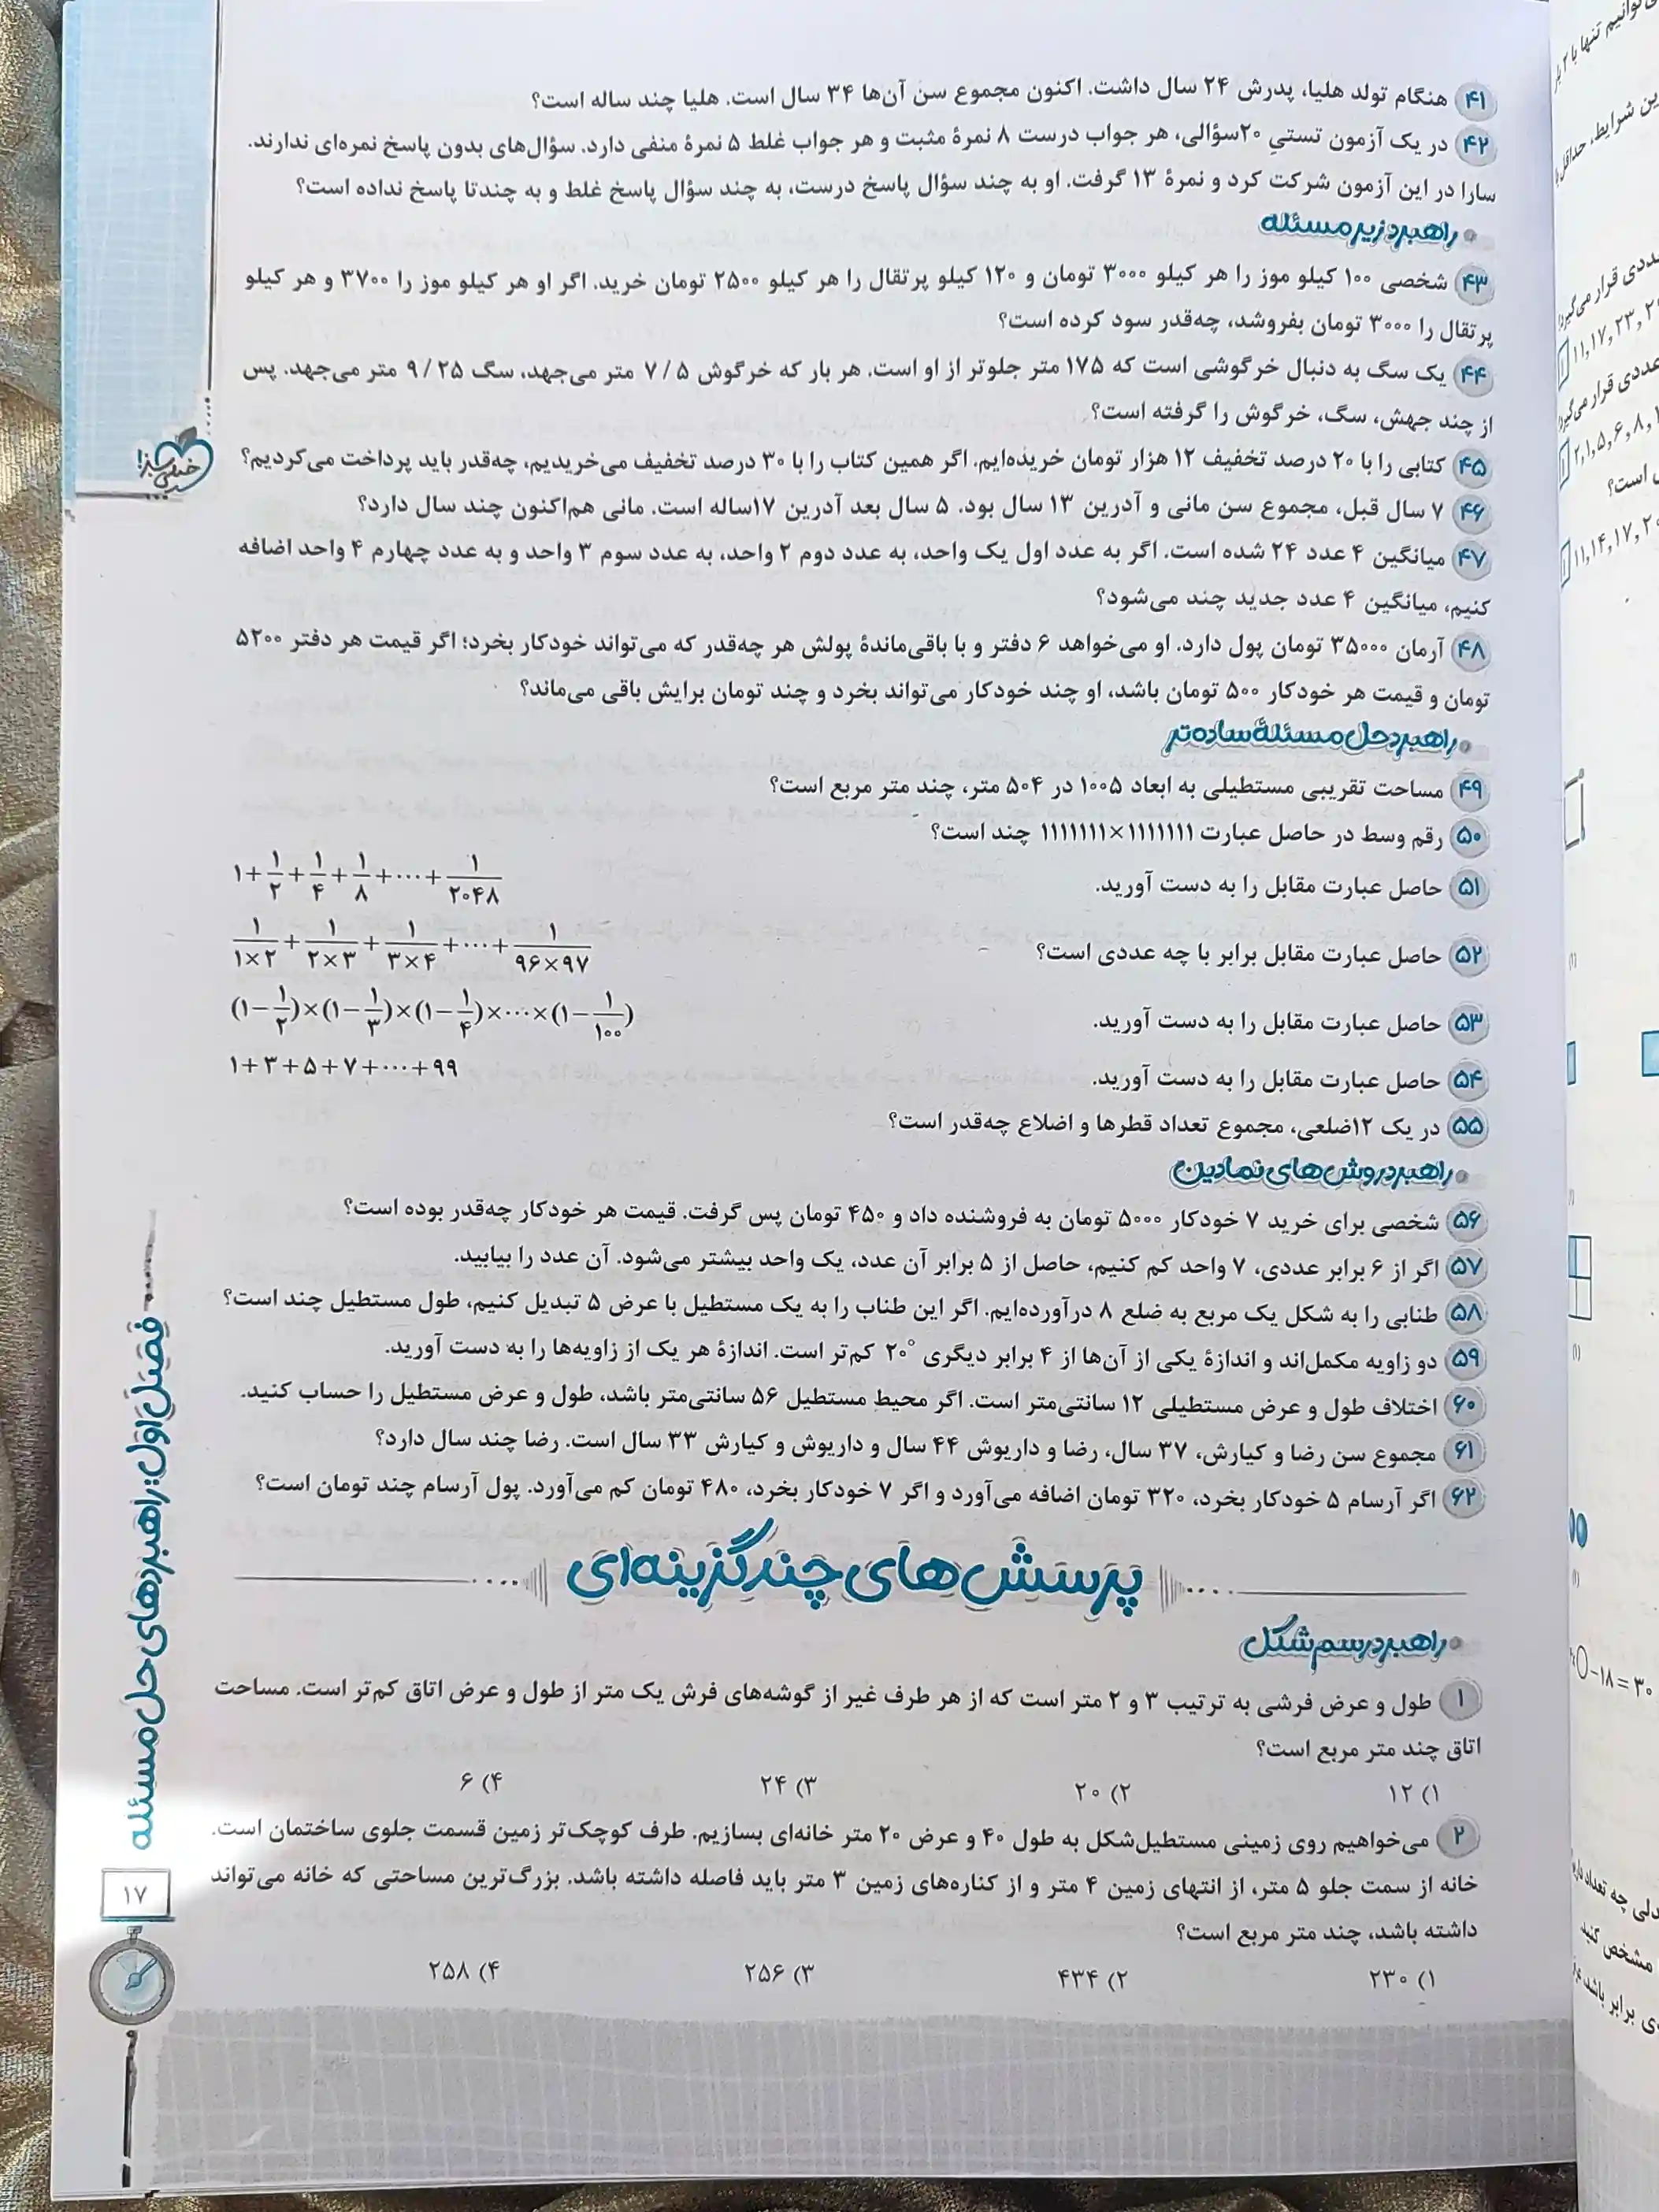 ۴۱ هنگام تولد هلیا، پدرش ۲۴ سال داشت. اکنون مجموع سن آن‌ها ۳۴ سال است. هلیا چند ساله است؟
۴۲ در یک آزمون تستیِ ۲۰سؤالی، هر جواب درست ۸ نمرهٔ مثبت و هر جواب غلط ۵ نمرهٔ منفی دارد. سؤال‌های بدون پاسخ نمره‌ای ندارند.
سارا در این آزمون شرکت کرد و نمرهٔ ۱۳ گرفت. او به چند سؤال پاسخ درست، به چند سؤال پاسخ غلط و به چندتا پاسخ نداده است؟
راهبرد زیرمسئله
۴۳ شخصی ۱۰۰ کیلو موز را هر کیلو ۳۰۰۰ تومان و ۱۲۰ کیلو پرتقال را هر کیلو ۲۵۰۰ تومان خرید. اگر او هر کیلو موز را ۳۷۰۰ و هر کیلو
پرتقال را ۳۰۰۰ تومان بفروشد، چه‌قدر سود کرده است؟
۴۴ یک سگ به دنبال خرگوشی است که ۱۷۵ متر جلوتر از او است. هر بار که خرگوش ۷/۵ متر می‌جهد، سگ ۹/۲۵ متر می‌جهد. پس
از چند جهش، سگ، خرگوش را گرفته است؟
۴۵ کتابی را با ۲۰ درصد تخفیف ۱۲ هزار تومان خریده‌ایم. اگر همین کتاب را با ۳۰ درصد تخفیف می‌خریدیم، چه‌قدر باید پرداخت می‌کردیم؟
خیلی سبز!
۴۶ ۷ سال قبل، مجموع سن مانی و آدرین ۱۳ سال بود. ۵ سال بعد آدرین ۱۷ساله است. مانی هم‌اکنون چند سال دارد؟
۴۷ میانگین ۴ عدد ۲۴ شده است. اگر به عدد اول یک واحد، به عدد دوم ۲ واحد، به عدد سوم ۳ واحد و به عدد چهارم ۴ واحد اضافه
کنیم، میانگین ۴ عدد جدید چند می‌شود؟
۴۸ آرمان ۳۵۰۰۰ تومان پول دارد. او می‌خواهد ۶ دفتر و با باقی‌ماندهٔ پولش هر چه‌قدر که می‌تواند خودکار بخرد؛ اگر قیمت هر دفتر ۵۲۰۰
تومان و قیمت هر خودکار ۵۰۰ تومان باشد، او چند خودکار می‌تواند بخرد و چند تومان برایش باقی می‌ماند؟
راهبرد حل مسئلهٔ ساده‌تر
۴۹ مساحت تقریبی مستطیلی به ابعاد ۱۰۰۵ در ۵۰۴ متر، چند متر مربع است؟
۵۰ رقم وسط در حاصل عبارت ۱۱۱۱۱۱۱×۱۱۱۱۱۱۱ چند است؟
۵۱ حاصل عبارت مقابل را به دست آورید. ۱+۱/۲+۱/۴+۱/۸+⋯+۱/۲۰۴۸
۵۲ حاصل عبارت مقابل برابر با چه عددی است؟ ۱/(۱×۲)+۱/(۲×۳)+۱/(۳×۴)+⋯+۱/(۹۶×۹۷)
۵۳ حاصل عبارت مقابل را به دست آورید. (۱−۱/۲)×(۱−۱/۳)×(۱−۱/۴)×⋯×(۱−۱/۱۰۰)
۵۴ حاصل عبارت مقابل را به دست آورید. ۱+۳+۵+۷+⋯+۹۹
۵۵ در یک ۱۲ضلعی، مجموع تعداد قطرها و اضلاع چه‌قدر است؟
راهبرد روش‌های نمادین
۵۶ شخصی برای خرید ۷ خودکار ۵۰۰۰ تومان به فروشنده داد و ۴۵۰ تومان پس گرفت. قیمت هر خودکار چه‌قدر بوده است؟
۵۷ اگر از ۶ برابر عددی، ۷ واحد کم کنیم، حاصل از ۵ برابر آن عدد، یک واحد بیشتر می‌شود. آن عدد را بیابید.
۵۸ طنابی را به شکل یک مربع به ضلع ۸ درآورده‌ایم. اگر این طناب را به یک مستطیل با عرض ۵ تبدیل کنیم، طول مستطیل چند است؟
۵۹ دو زاویه مکمل‌اند و اندازهٔ یکی از آن‌ها از ۴ برابر دیگری ۲۰° کم‌تر است. اندازهٔ هر یک از زاویه‌ها را به دست آورید.
۶۰ اختلاف طول و عرض مستطیلی ۱۲ سانتی‌متر است. اگر محیط مستطیل ۵۶ سانتی‌متر باشد، طول و عرض مستطیل را حساب کنید.
۶۱ مجموع سن رضا و کیارش، ۳۷ سال، رضا و داریوش ۴۴ سال و داریوش و کیارش ۳۳ سال است. رضا چند سال دارد؟
۶۲ اگر آرسام ۵ خودکار بخرد، ۳۲۰ تومان اضافه می‌آورد و اگر ۷ خودکار بخرد، ۴۸۰ تومان کم می‌آورد. پول آرسام چند تومان است؟
پرسش‌های چندگزینه‌ای
راهبرد رسم شکل
۱ طول و عرض فرشی به ترتیب ۳ و ۲ متر است که از هر طرف غیر از گوشه‌های فرش یک متر از طول و عرض اتاق کم‌تر است. مساحت
اتاق چند متر مربع است؟
۱) ۱۲ ۲) ۲۰ ۳) ۲۴ ۴) ۶
۲ می‌خواهیم روی زمینی مستطیل‌شکل به طول ۴۰ و عرض ۲۰ متر خانه‌ای بسازیم. طرف کوچک‌تر زمین قسمت جلوی ساختمان است.
خانه از سمت جلو ۵ متر، از انتهای زمین ۴ متر و از کناره‌های زمین ۳ متر باید فاصله داشته باشد. بزرگ‌ترین مساحتی که خانه می‌تواند
داشته باشد، چند متر مربع است؟
۱) ۲۳۰ ۲) ۴۳۴ ۳) ۲۵۶ ۴) ۲۵۸
فصل اول: راهبردهای حل مسئله
۱۷
۱۱,۱۷,۲۳,
۲,۱,۵,۶,۸,
۱۱,۱۴,۱۷,۲۰
−۱۸=۳۰